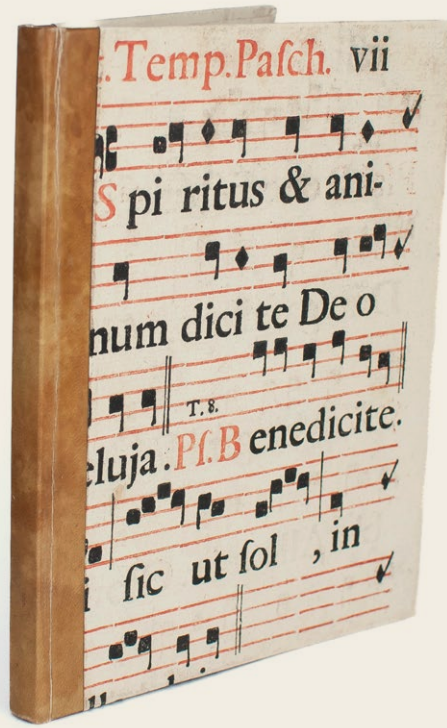 . Temp. Paſch. vii
Spi ritus & ani-
num dici te De o
T. 8.
eluja. Pſ. B enedicite.
i ſic ut ſol , in